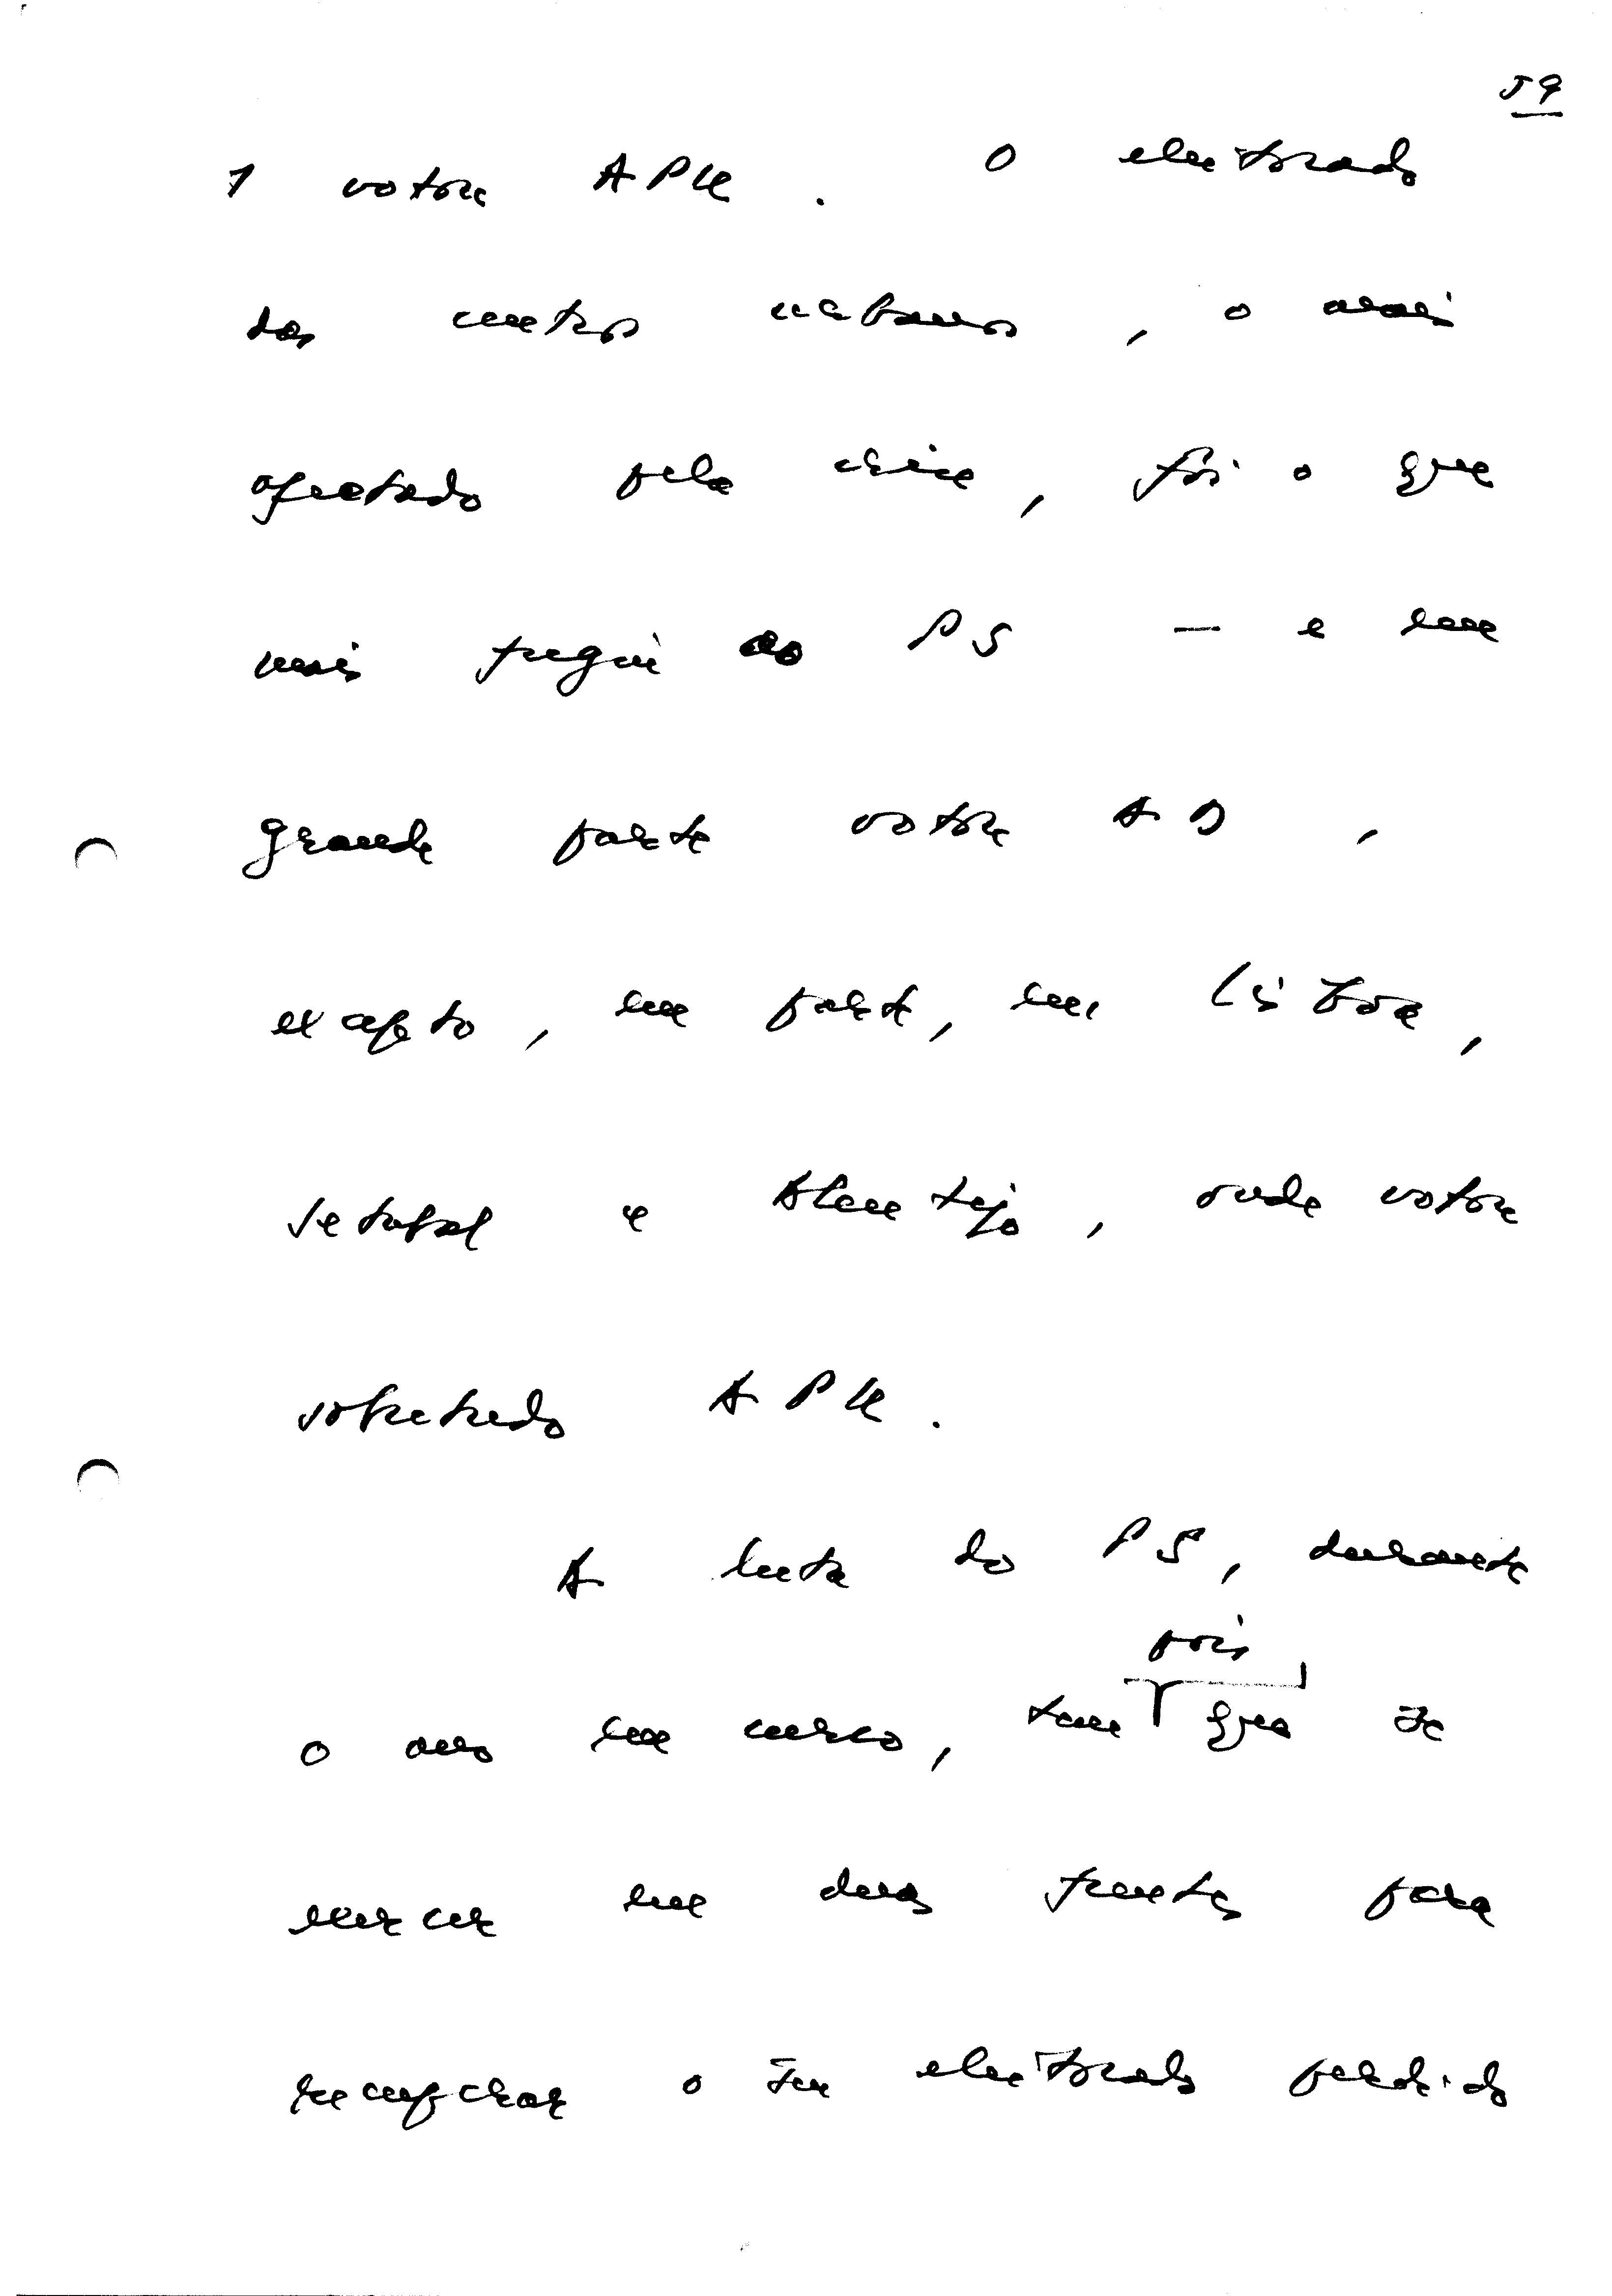 59
1 votou APU. O eleitorado
dos centros urbanos, o mais
afectado pela crise, foi o que
mais fugiu ao PS — e em
grande parte votou AD,
excepto, em parte, em Lisboa,
Setubal e Alentejo, onde votou
sobretudo APU.
A luta do PS, durante
pois
o ano em curso, tem que se
exercer em duas frentes para
recuperar o seu eleitorado perdido